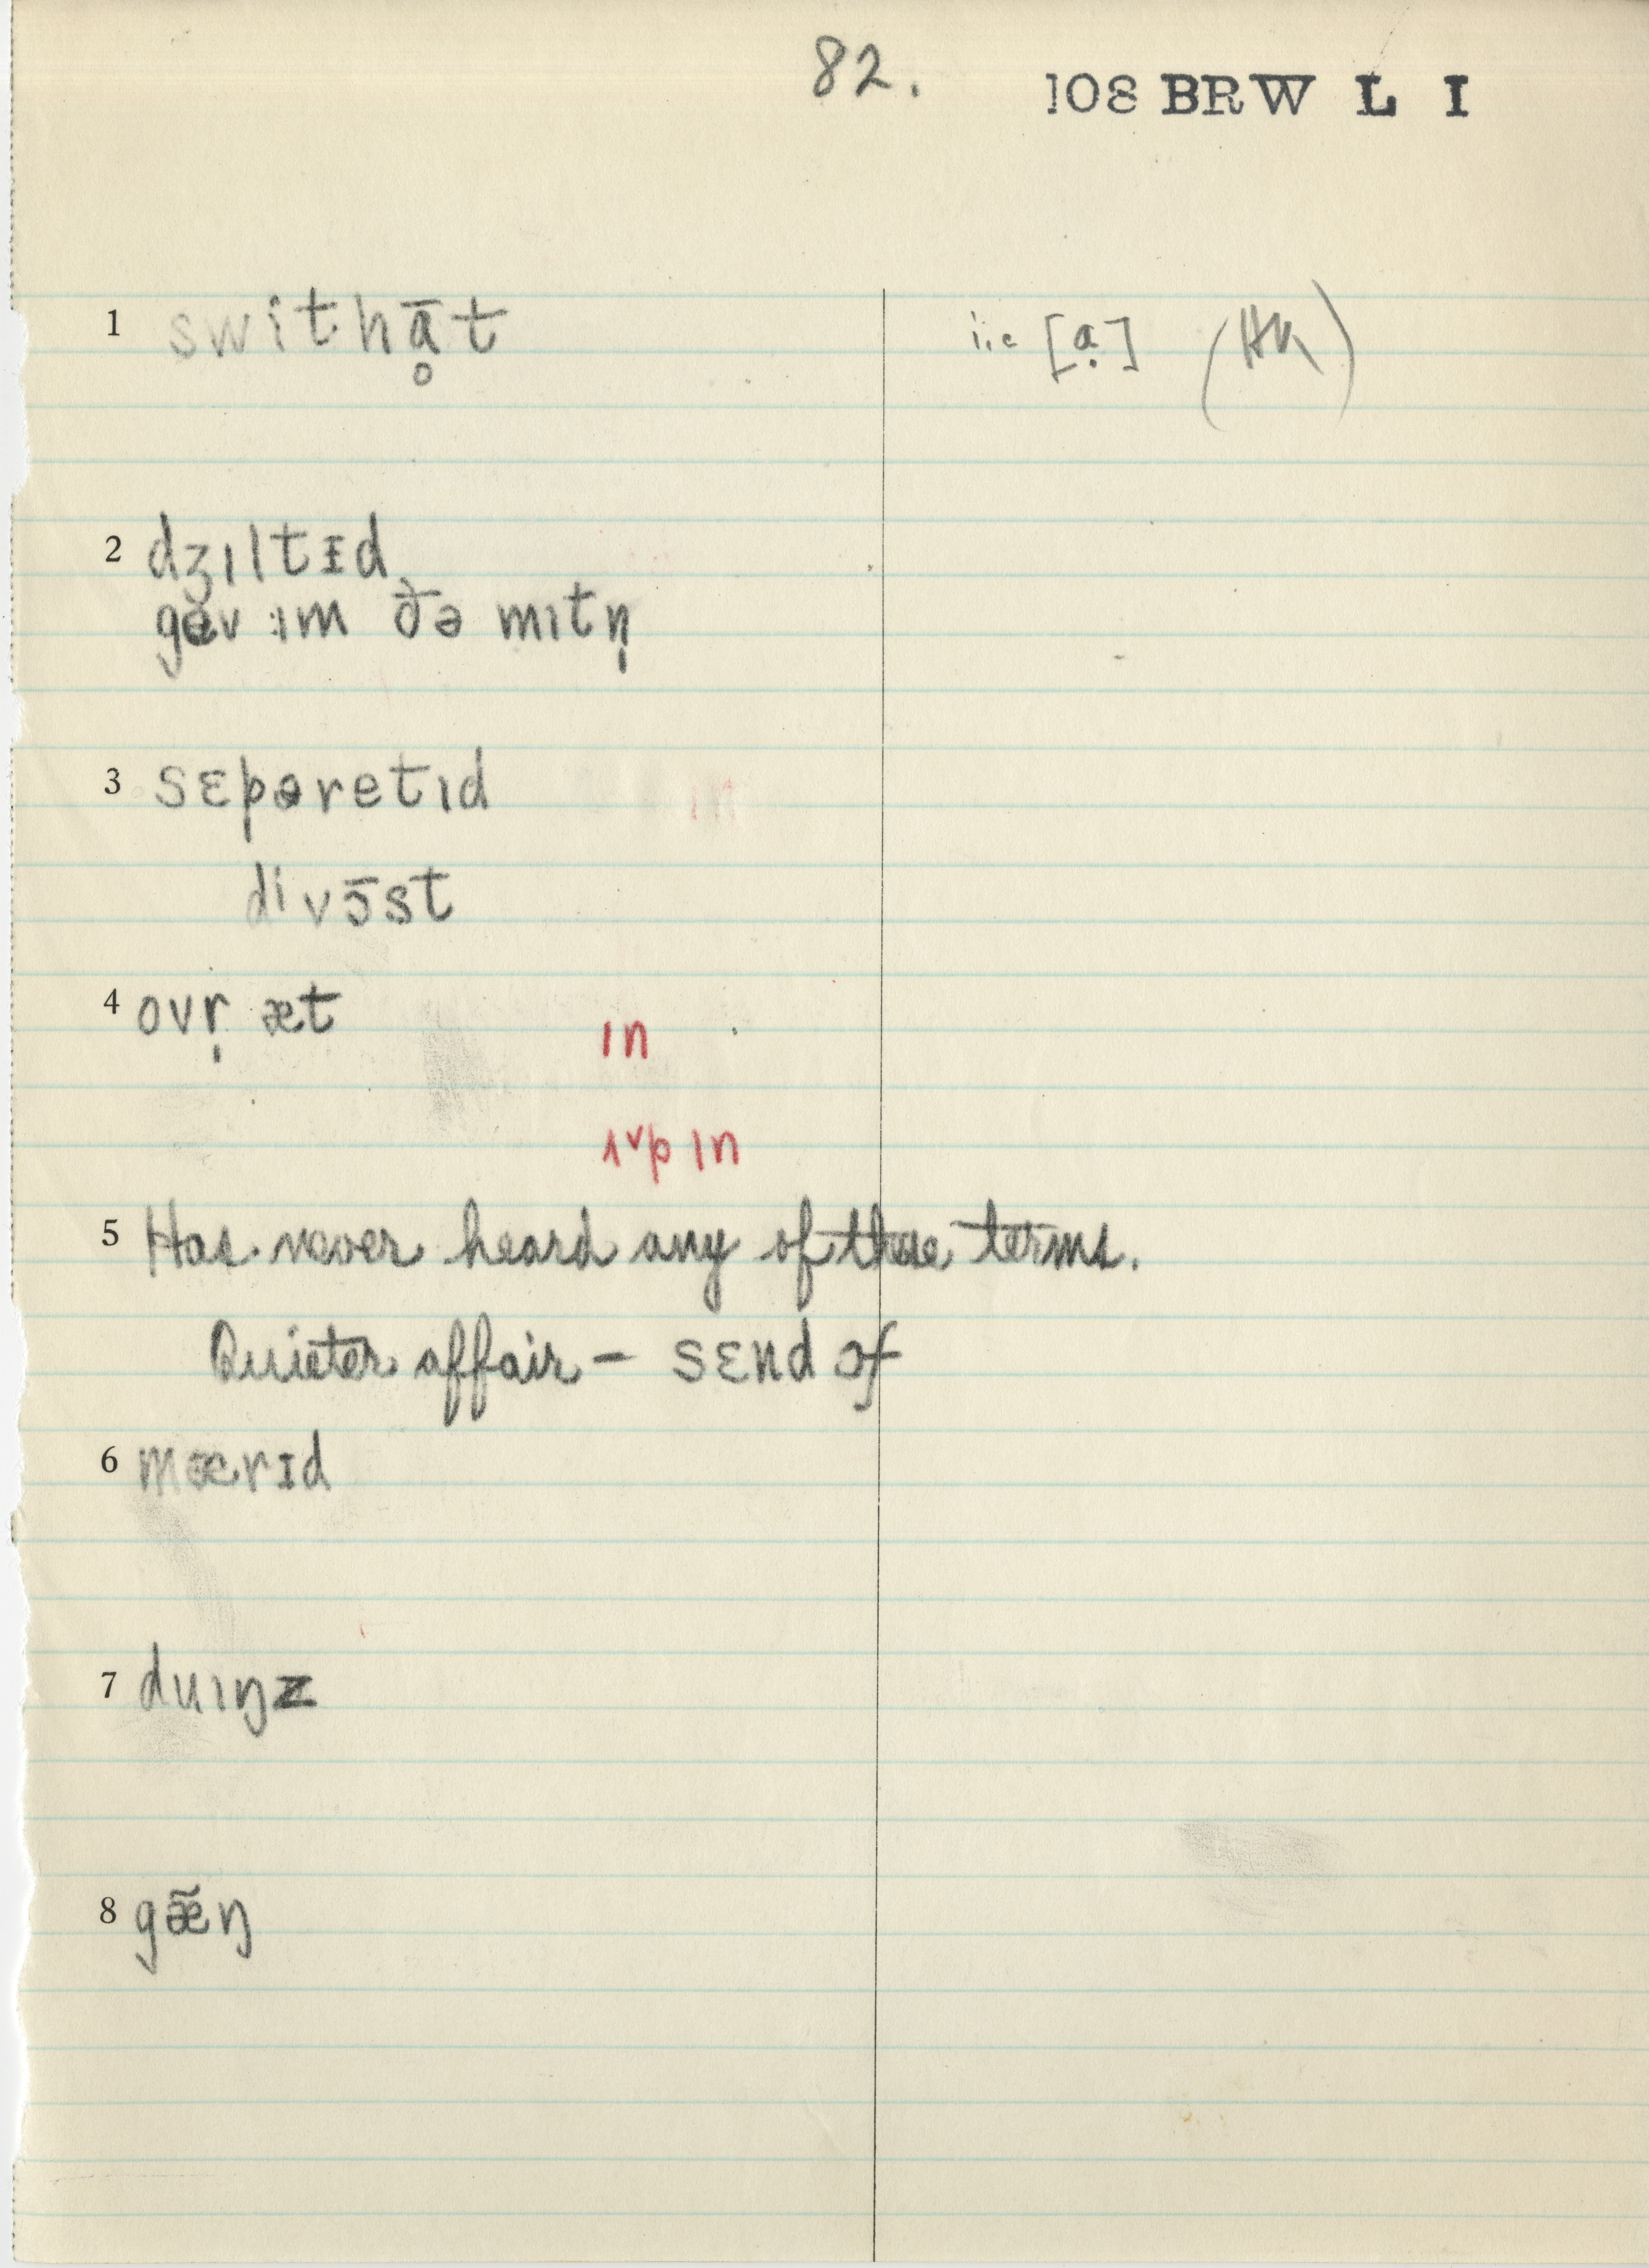 82.
108 BRW L I
1 swithɑ̥̄t i.e [ɑ̣] (HK)
2 dʒıltɪd
gev ım ðə mıtn̩
3 sɛpəretıd
divɔ̄st
4 ovr̩ æt
ın
ʌp ın
5 Has never heard any of these terms.
Quieter affair – sɛnd ɔf
6 mærɪd
7 duıŋz
8 gæ̃ŋ